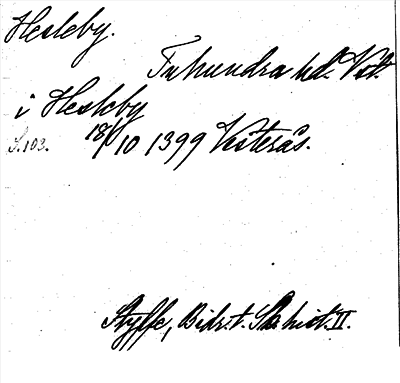 Hesleby.
Tuhundra hd. Vstm.
i Hesleby
S. 103. 18/10 1399 Västerås.
Styffe, Bidr. t. Sk. hist. II.